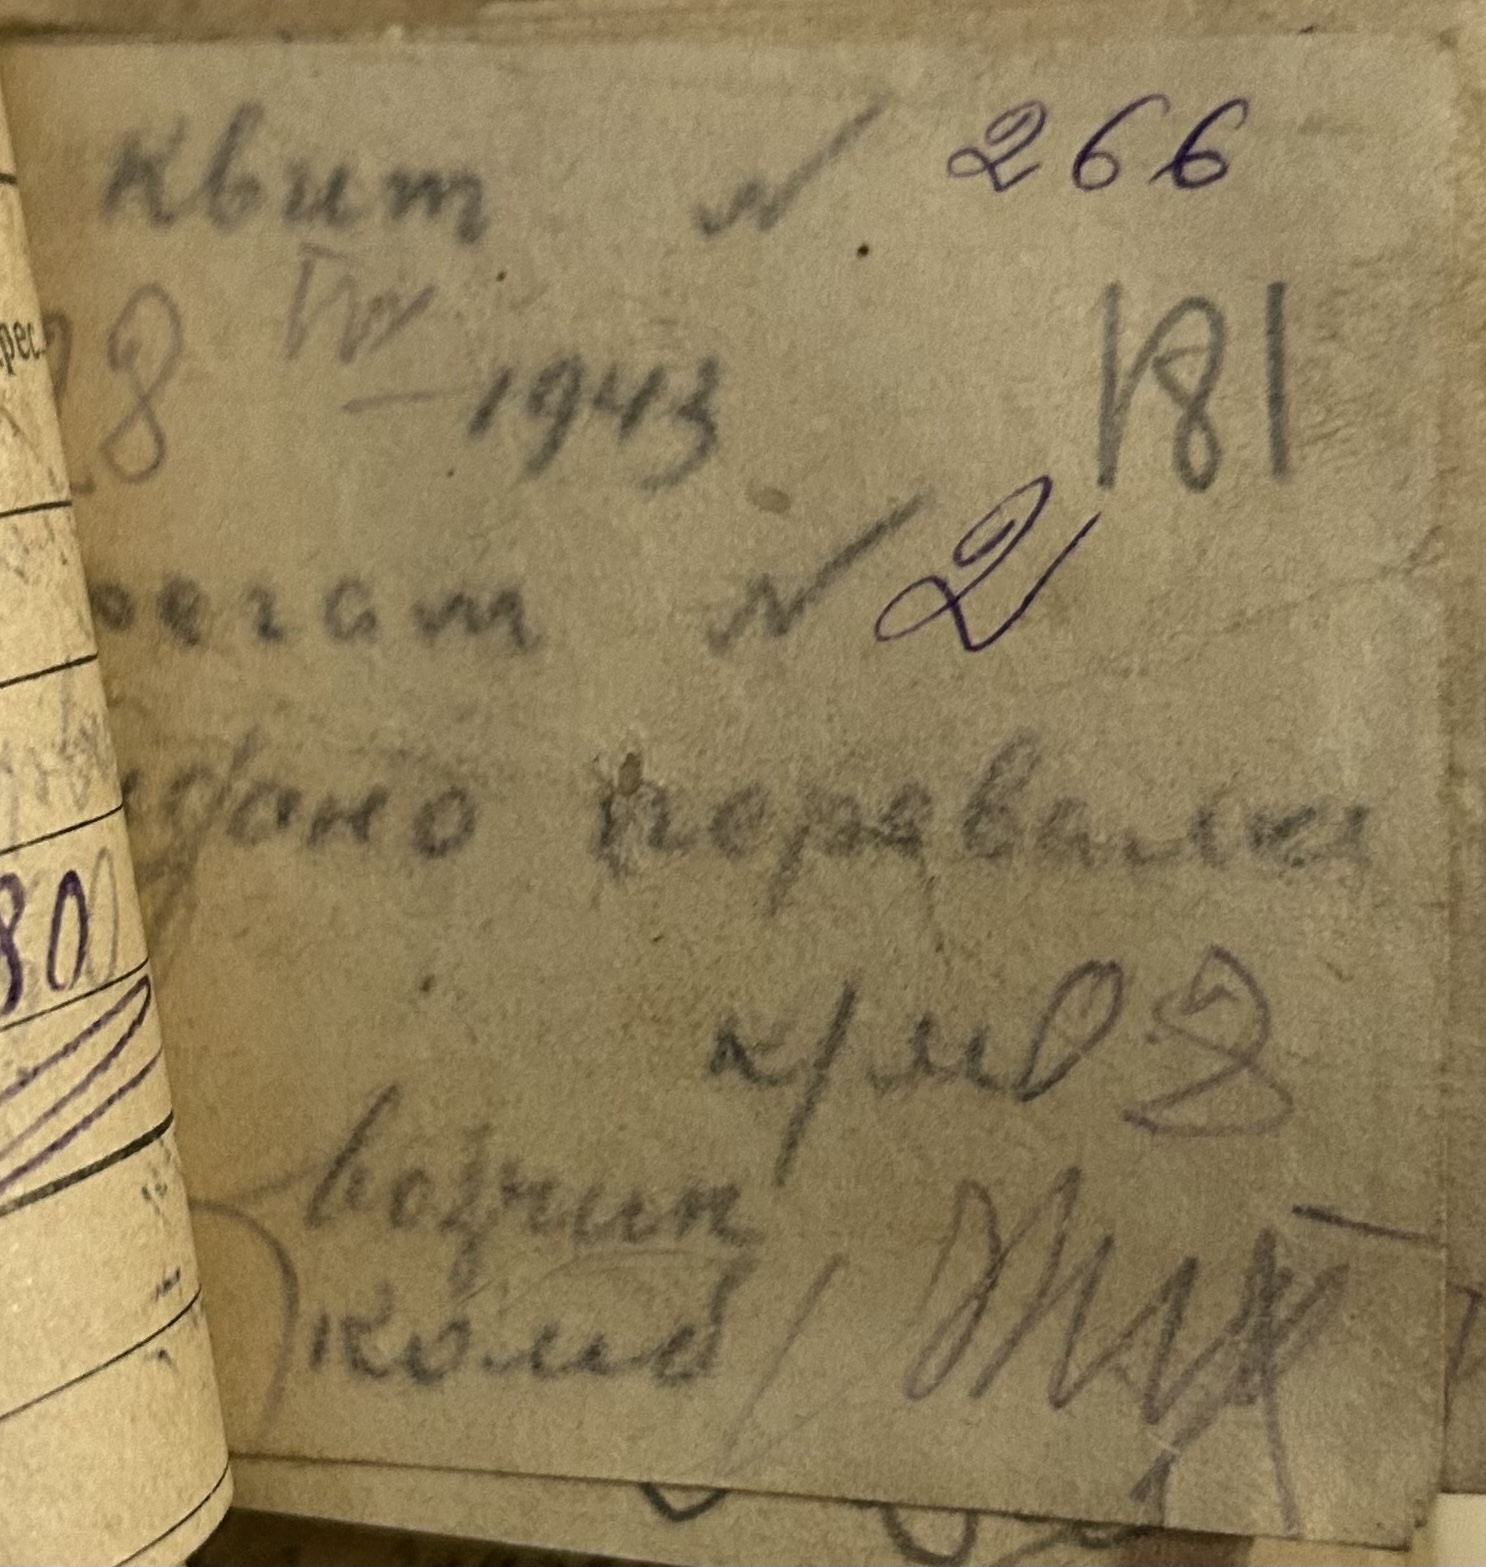 Квит N 266
28 IV - 1943 181
регат N 2
дано перевалки
к/м 0 8
возчик
комб
рес.
80